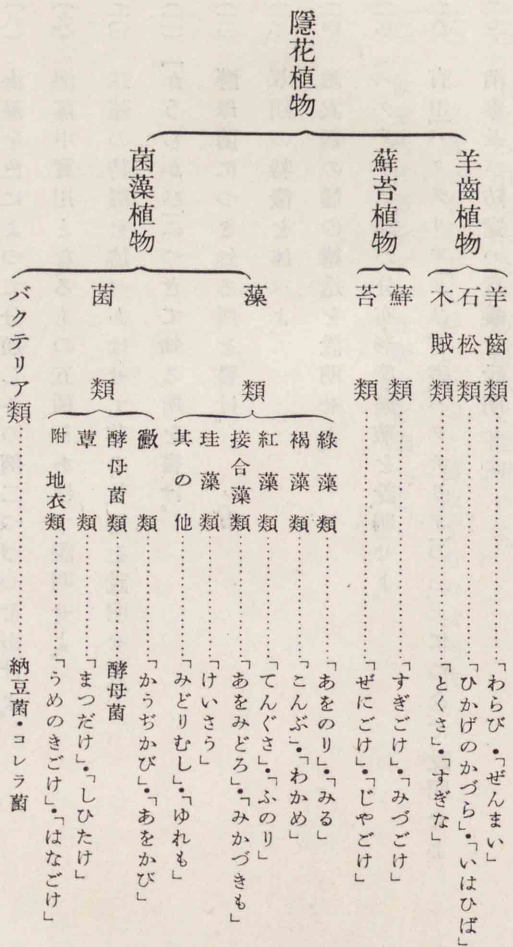 隱花植物
羊齒植物
羊齒類……「わらび」・「ぜんまい」
石松類……「ひかげのかづら」・「いはひば」
木賊類……「とくさ」・「すぎな」
蘚苔植物
蘚類……「すぎごけ」・「みづごけ」
苔類……「ぜにごけ」・「じやごけ」
菌藻植物
藻類
綠藻類……「あをのり」・「みる」
褐藻類……「こんぶ」・「わかめ」
紅藻類……「てんぐさ」・「ふのり」
接合藻類……「あをみどろ」・「みかづきも」
珪藻類……「けいさう」
其の他……「みどりむし」・「ゆれも」
菌類
黴類……「かうぢかび」・「あをかび」
酵母菌類……酵母菌
蕈類……「まつだけ」・「しひたけ」
附 地衣類……「うめのきごけ」・「はなごけ」
バクテリア類……納豆菌・コレラ菌